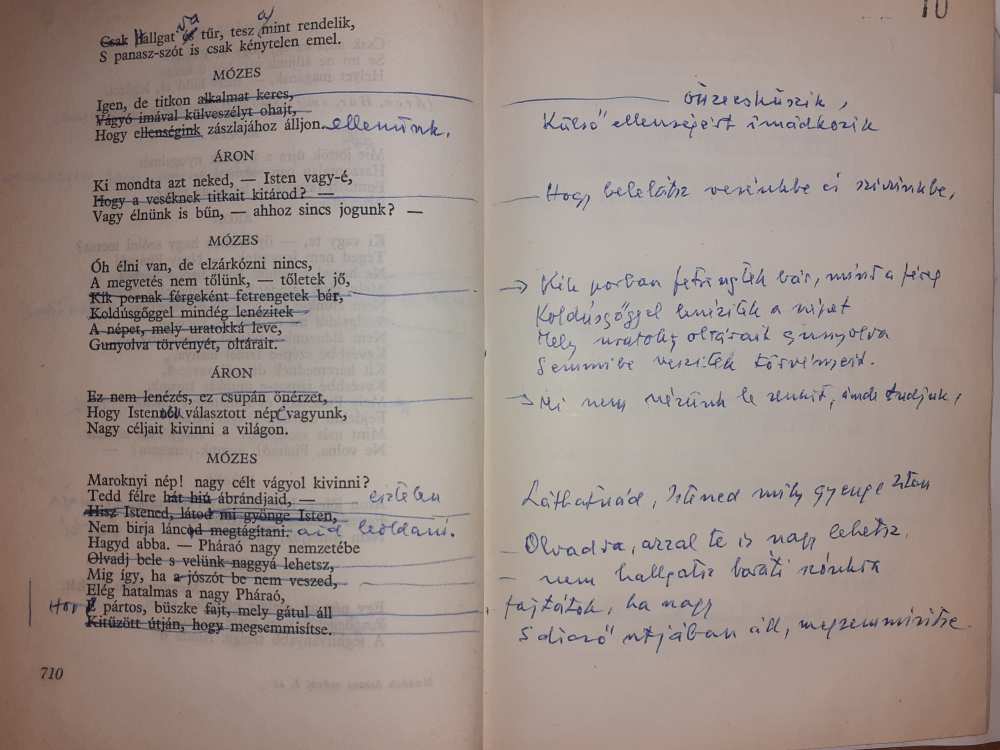 10
va a,
Csak Hallgat és tűr, tesz mint rendelik,
S panasz-szót is csak kénytelen emel.
MÓZES
Igen, de titkon alkalmat keres, összeesküszik,
Vágyó imával külveszélyt ohajt, Külső ellenségért imádkozik
Hogy ellenségink zászlajához álljon. ellenünk.
ÁRON
Ki mondta azt neked, — Isten vagy-é,
Hogy a veséknek titkait kitárod? — Hogy belelátsz vesénkbe és szivünkbe,
Vagy élnünk is bűn, — ahhoz sincs jogunk? —
MÓZES
Óh élni van, de elzárkózni nincs,
A megvetés nem tőlünk, — tőletek jő,
Kik pornak férgeként fetrengetek bár, Kik porban fetrengtek bár, mint a féreg
Koldúsgőggel mindég lenézitek Koldúsgőggel lenézitek a népet
A népet, mely uratokká leve, Mely uratok, oltáraik gúnyolva
Gunyolva törvényét, oltárait. Semmibe veszitek törvényeit.
ÁRON
Ez nem lenézés, ez csupán önérzet, Mi nem nézünk le senkit, ámde tudjuk,
Hogy Istentől választott nép vagyunk,
Nagy céljait kivinni a világon.
MÓZES
Maroknyi nép! nagy célt vágyol kivinni?
Tedd félre hát hiú ábrándjaid, — esztelen
Hisz Istened, látod mi gyönge Isten, Láthatnád, Istened mily gyenge Isten
Nem birja láncod megtágítani. aid leoldani.
Hagyd abba. — Pháraó nagy nemzetébe
Olvadj bele s velünk naggyá lehetsz, Olvadva, azzal te is nagy lehetsz.
Mig így, ha a jószót be nem veszed, nem hallgatsz baráti szónkra
Elég hatalmas a nagy Pháraó,
Hogy pártos, büszke fajt, mely gátul áll fajtátok, ha nagy
Kitűzött útján, hogy megsemmisítse. S dicső utjában áll, megsemmisitse.
710